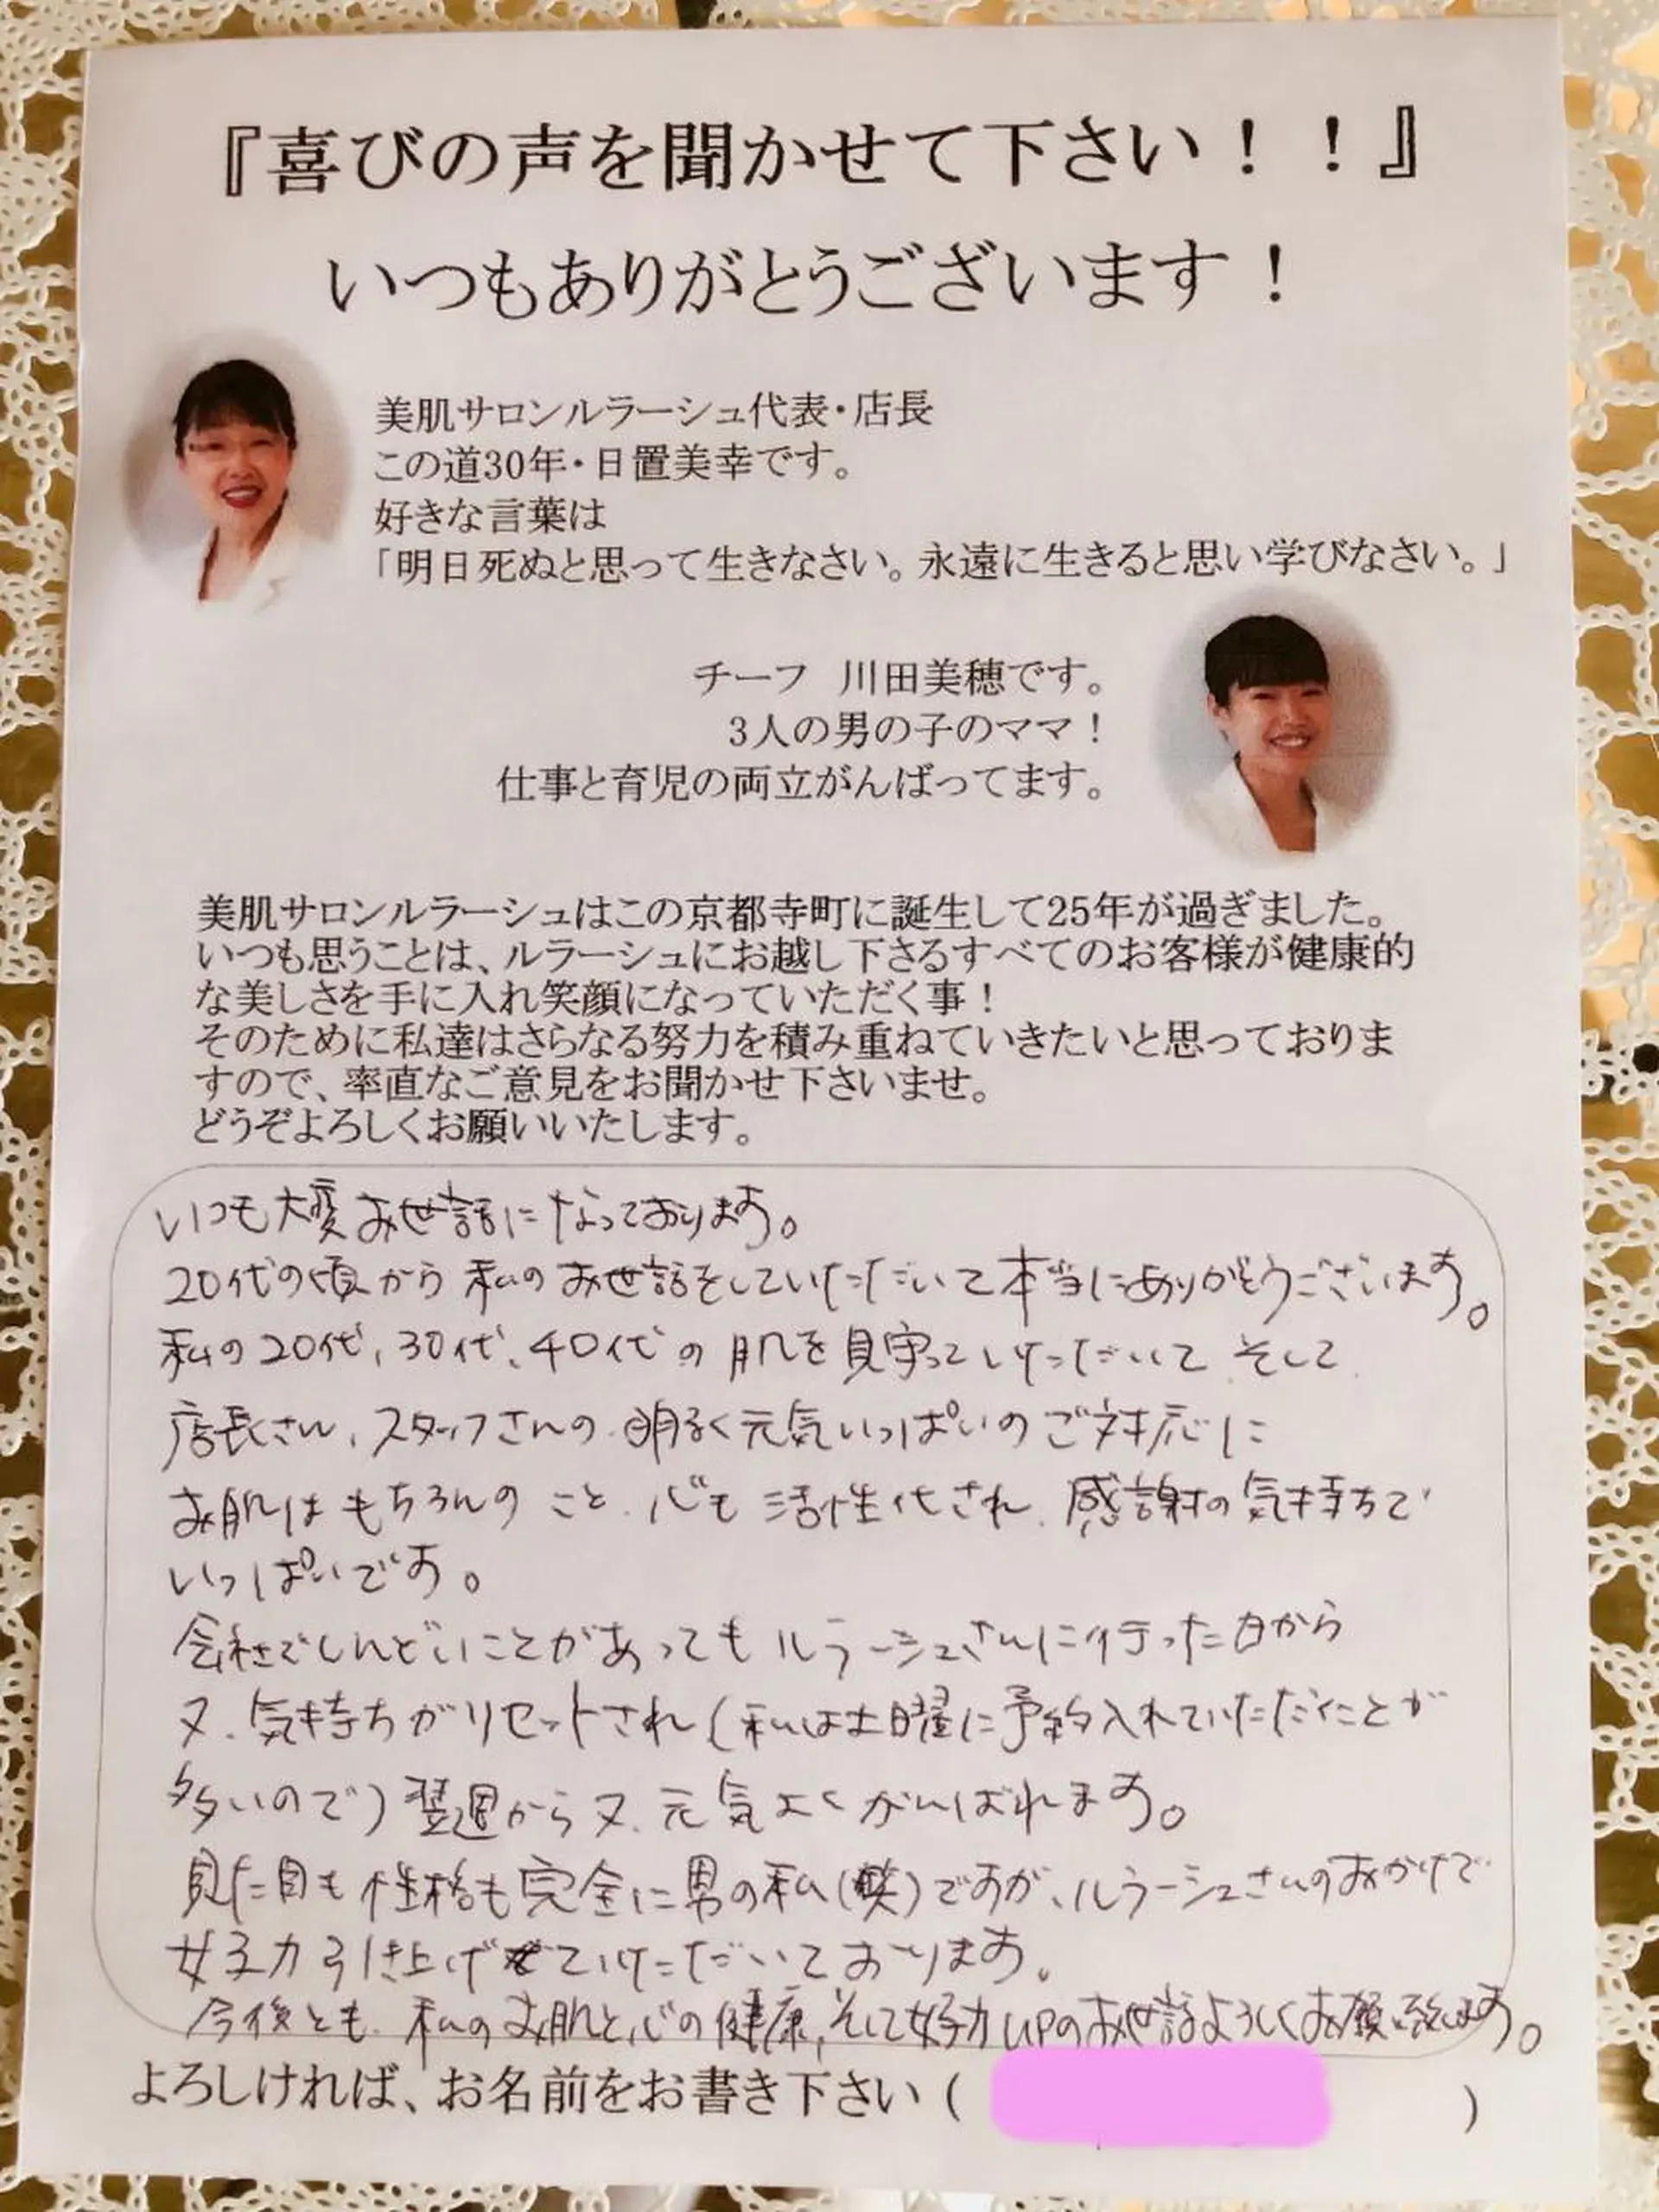 『喜びの声を聞かせて下さい！！』
いつもありがとうございます！
美肌サロンルラーシュ代表・店長
この道30年・日置美幸です。
好きな言葉は
「明日死ぬと思って生きなさい。永遠に生きると思い学びなさい。」
チーフ　川田美穂です。
3人の男の子のママ！
仕事と育児の両立がんばってます。
美肌サロンルラーシュはこの京都寺町に誕生して25年が過ぎました。
いつも思うことは、ルラーシュにお越し下さるすべてのお客様が健康的
な美しさを手に入れ笑顔になっていただく事！
そのために私達はさらなる努力を積み重ねていきたいと思っておりま
すので、率直なご意見をお聞かせ下さいませ。
どうぞよろしくお願いいたします。
いつも大変お世話になっております。
20代の頃から私のお世話をしていただいて本当にありがとうございます。
私の20代、30代、40代の肌を見守っていただいて、そして、
店長さん、スタッフさんの明るく元気いっぱいのご対応に
お肌はもちろんのこと、心も活性化され、感謝の気持ちで
いっぱいです。
会社でしんどいことがあってもルラーシュさんに行った日から
又、気持ちがリセットされ(私は土曜に予約入れていただくことが
多いので)翌週から又、元気よくがんばれます。
見た目も性格も完全に男の私(笑)ですが、ルラーシュさんのおかげで
女子力引き上げていただいております。
今後とも、私のお肌と心の健康、そして女子力UPのお世話よろしくお願い致します。
よろしければ、お名前をお書き下さい（　　　　　）